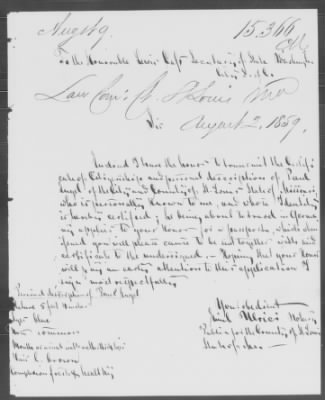 Aug 9
15.366
To the Honorable Lewis Cass Secretary of State Washington
St. Louis Mo
Sir August 2, 1859.
Inclosed I have the honor to transmit the Certifi
cate of Citizenship and personal descriptions of Paul
of the City and County of St. Louis State of Missouri
who is personally known to me, and whose Identity
is hereby certified; he being about to travel in Germa
ny applies to your honor for a passport, which when
found you will please cause to be sent together with said
certificate to the undersigned. Hoping that your honor
will pay an early attention to this application I
sign most respectfully
Your obedient
Notary
Public for the County of St Louis
State of Mo
Personal description of Paul
Stature 5 feet
Eyes blue
Nose common
Mouth
Hair brown
Complexion healthy